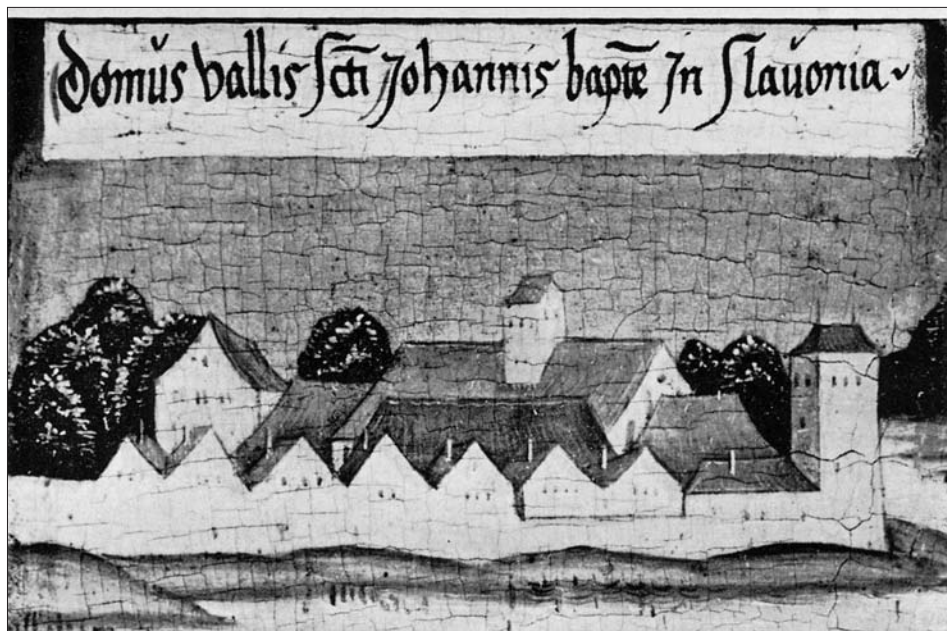 domus vallis scti Johannis bapte In Slavonia